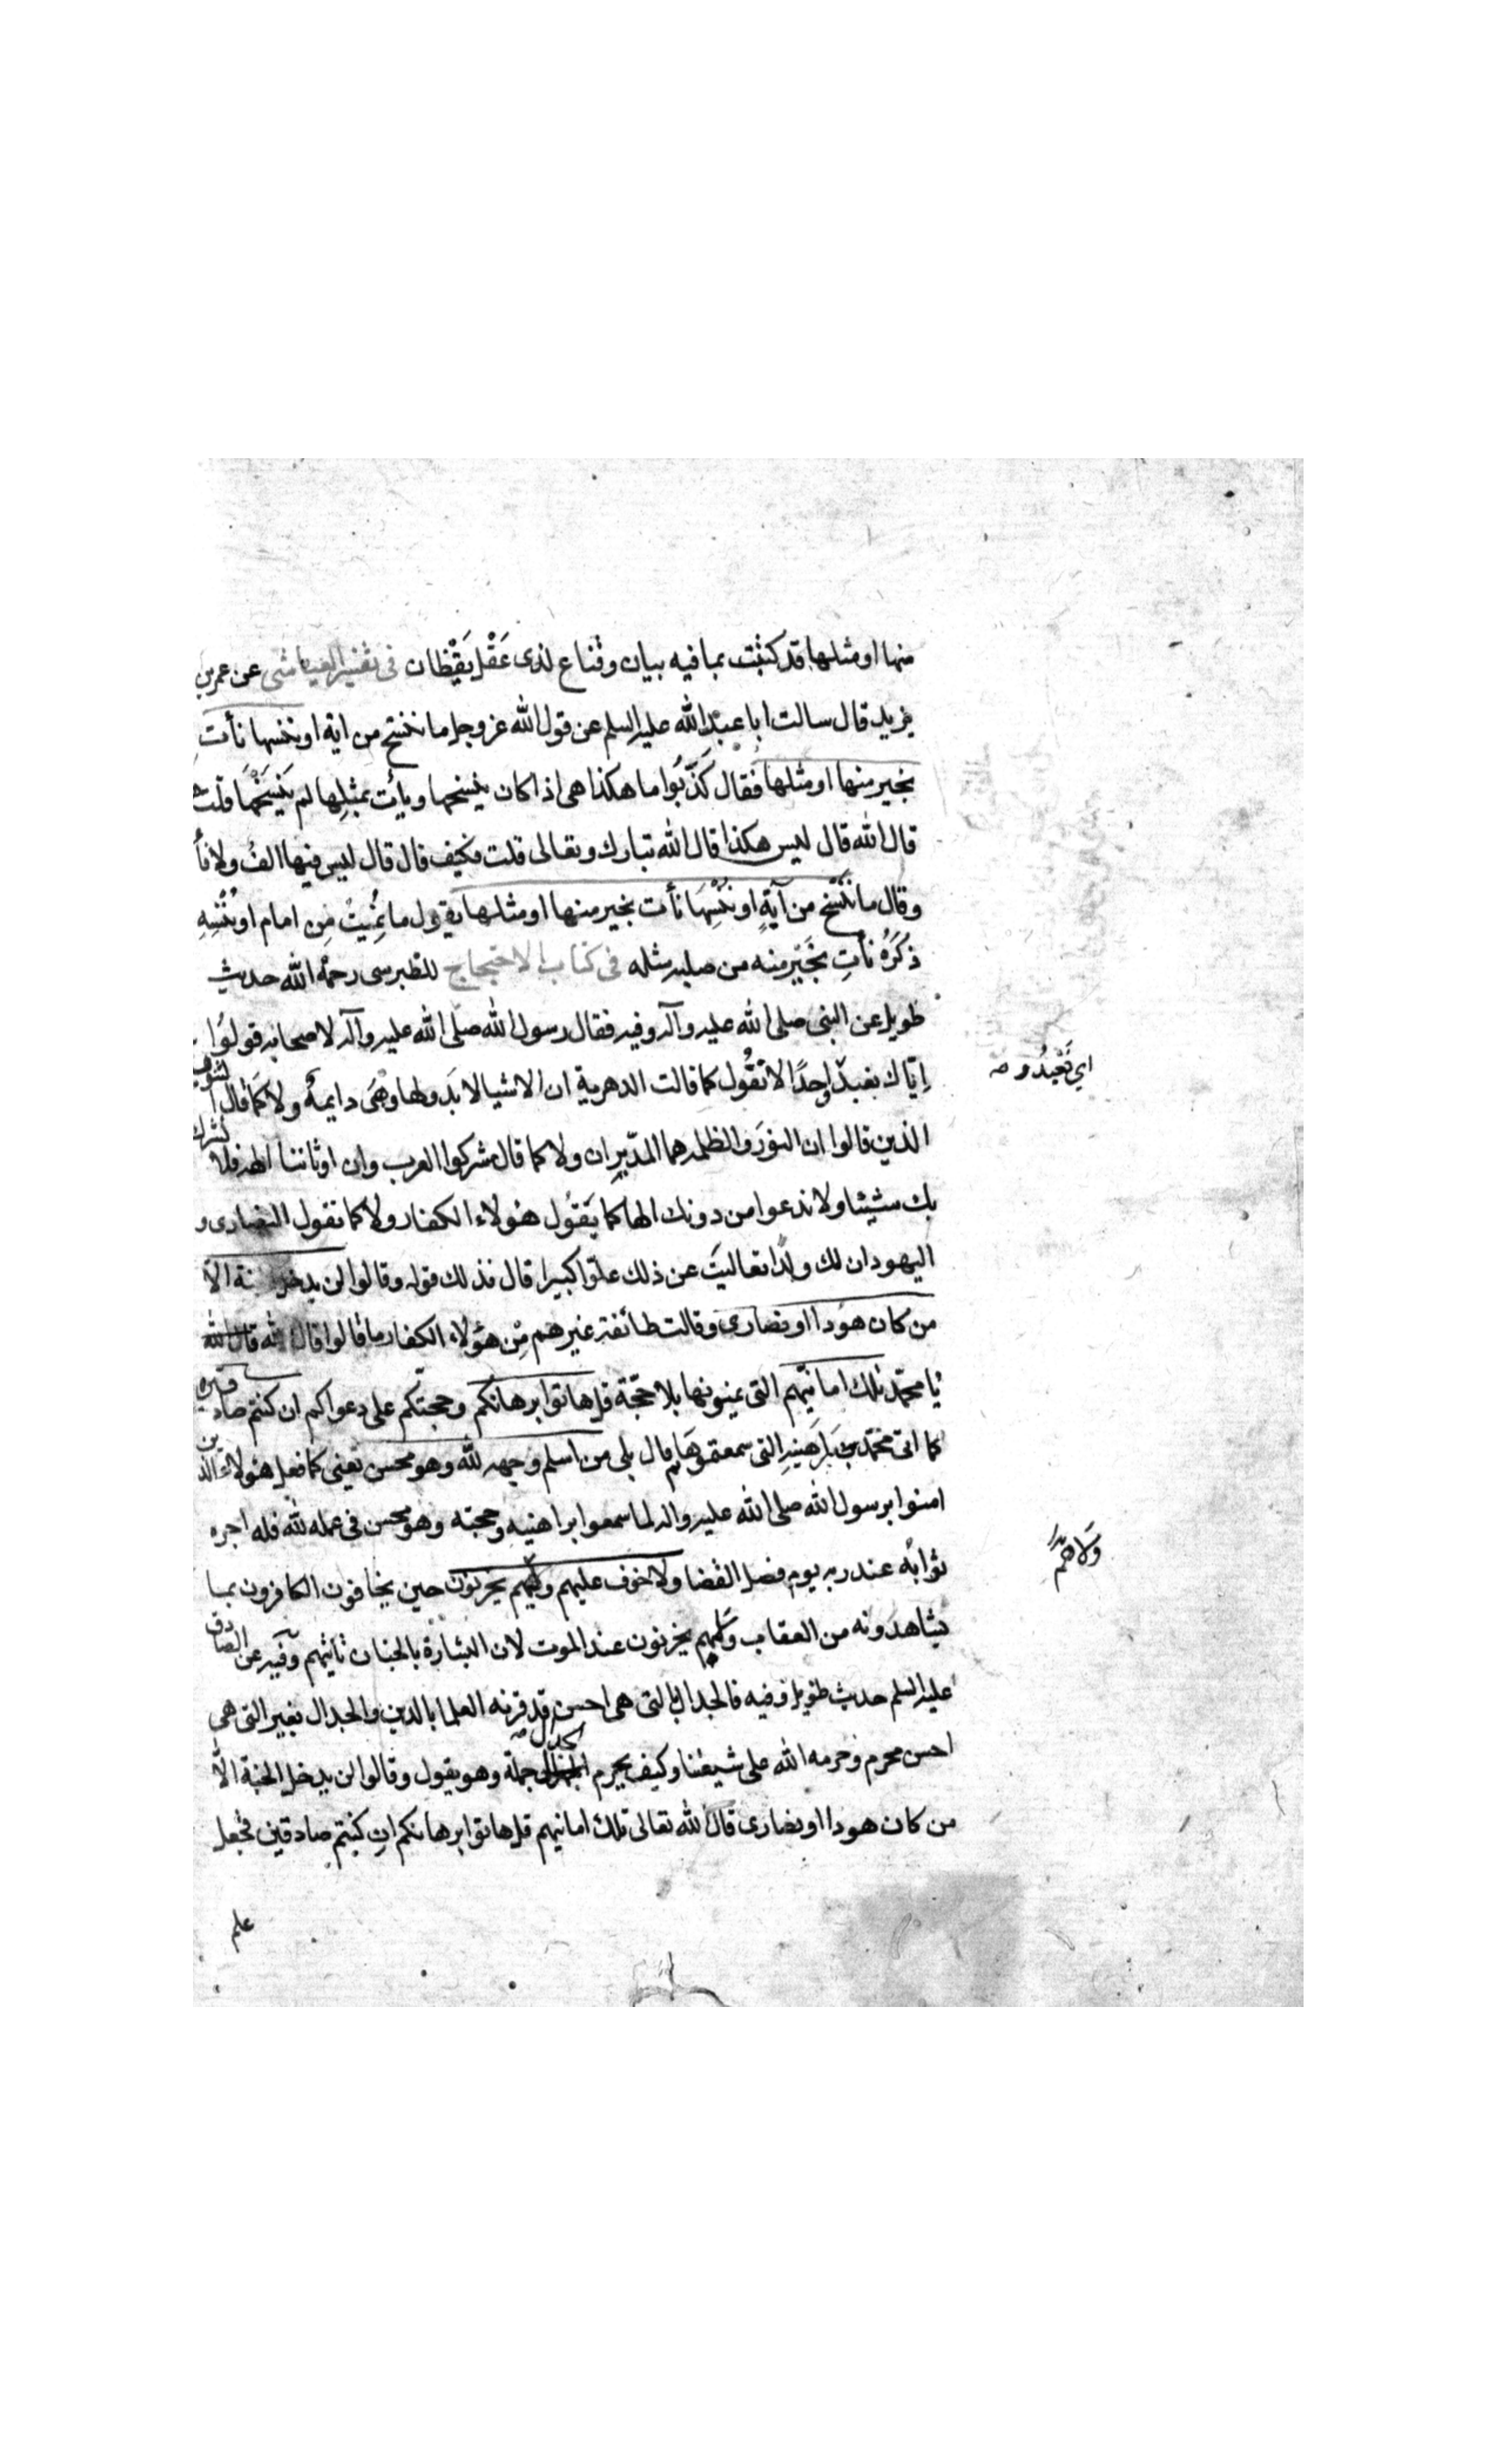 منها او مثلها قد كتبت بما فيه بيان وقناع لذى عَقْل يَقْظان فى تفسير العياشى عن عمر بن
يزيد قال سالت ابا عبد الله عليه السلم عن قول الله عز وجل ما ننسخ من اية او ننسها نأت
بخير منها او مثلها فقال كذّبُوا ما هكذا هى اذا كان ينسخها ويأت بمثلها لم يَنْسَخْها قلت هكذا
قال الله قال ليس هكذا قال الله تبارك وتعالى قلت فكيف قال قال ليس فيها الف ولا واو
وقال ما نَنْسَخ من آيةٍ او نُنْسِهَا نأت بخير منها او مثلها يقول ما نُمِيتُ مِن امام او نُنْسِهِ
ذكرَهُ نأتِ بخَيْر منه من صلبه مثله فى كتاب الاحتجاج للطبرسى رحمة الله حديث
طويل عن النبى صلى الله عليه وآله وفيه فقال رسول الله صلى الله عليه وآله لاصحابه قولوُا
إيّاك نعبد واحدًا لا نقُول كما قالت الدهرية ان الاشيا لا بَدو لها وهَى دايمةُ ولا كما قال الثنوية
الذين قالوا ان النورَ والظلمه هما المدّبِران ولا كما قال مشركوا العرب وان اوثاننا الهه فلا نشرك
بك شيئا ولا ندعوا من دونك الها كما يَقوُل هؤلاء الكفار ولا كما نقول النصارى و
اليهود ان لك ولدًا تعاليتَ عن ذلك علّوا كبيرا قال فذلك قوله وقالوا لن يدخل الجنة الاّ
من كان هوُدا او نصارى وقالت طائفة غيرهم مِن هؤلاء الكفار ما قالوا قال الله قال الله
يا محمّد تلك امانيّهم التى يمنونها بلا حجّة قل هاتوا برهانكم وحجتّكم على دعواكم ان كنتم صادقين
كما اتى محمّد ببَرَاهَينِهِ التى سمعتموهَا ثم قال بلى من اسلم وجهه لله وهو محسن يعنى كما فعل هؤلاء الذين
امنوا برسول الله صلى الله عليه واله لما سمعوا براهينه وحجته وهو محسن فى عمله لله فله اجره
ثوابُه عند ربه يوم فصل القضا ولا خوف عليهم ولاهم يحزنون حين يخافون الكافرون بما
يشاهدونه من العقاب ولاهم يحزنون عند الموت لان البشارة بالجنان تاتيهم وفيه عن الصادق
عليه السلم حديث طويل وفيه فالجدال بالتى هى احسن قد قرنه العلما بالدين والجدال بغير التى هى
احسن محرم وحرمه الله على شيعتنا وكيف يحرم الجدال جملة وهو يقول وقالوا لن يدخل الجنة الاّ
من كان هودا او نصارى قال الله تعالى تلك امانيهم قل هاتوا برهانكم انِ كنتم صادقين فجعل
علم
اى نَعْبُدُ و صـ
وَلاهُم